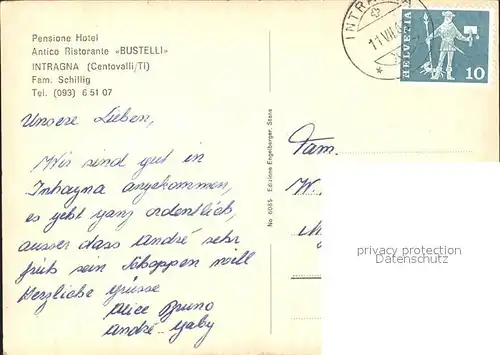 Pensione Hotel
Antico Ristorante «BUSTELLI»
INTRAGNA (Centovalli/TI)
Fam. Schillig
Tel. (093) 6 51 07
INTRAGNA
11.VII.
HELVETIA
10
Unsere Lieben,
Wir sind gut in
Intragna angekommen,
es geht ganz ordentlich,
ausser dass André sehr
früh sein Schoppen will
Herzliche Grüsse
Alice Bruno
André-Gaby
No 6085 Edizione Engelberger, Stans
Fam.
W.
privacy protection
Datenschutz